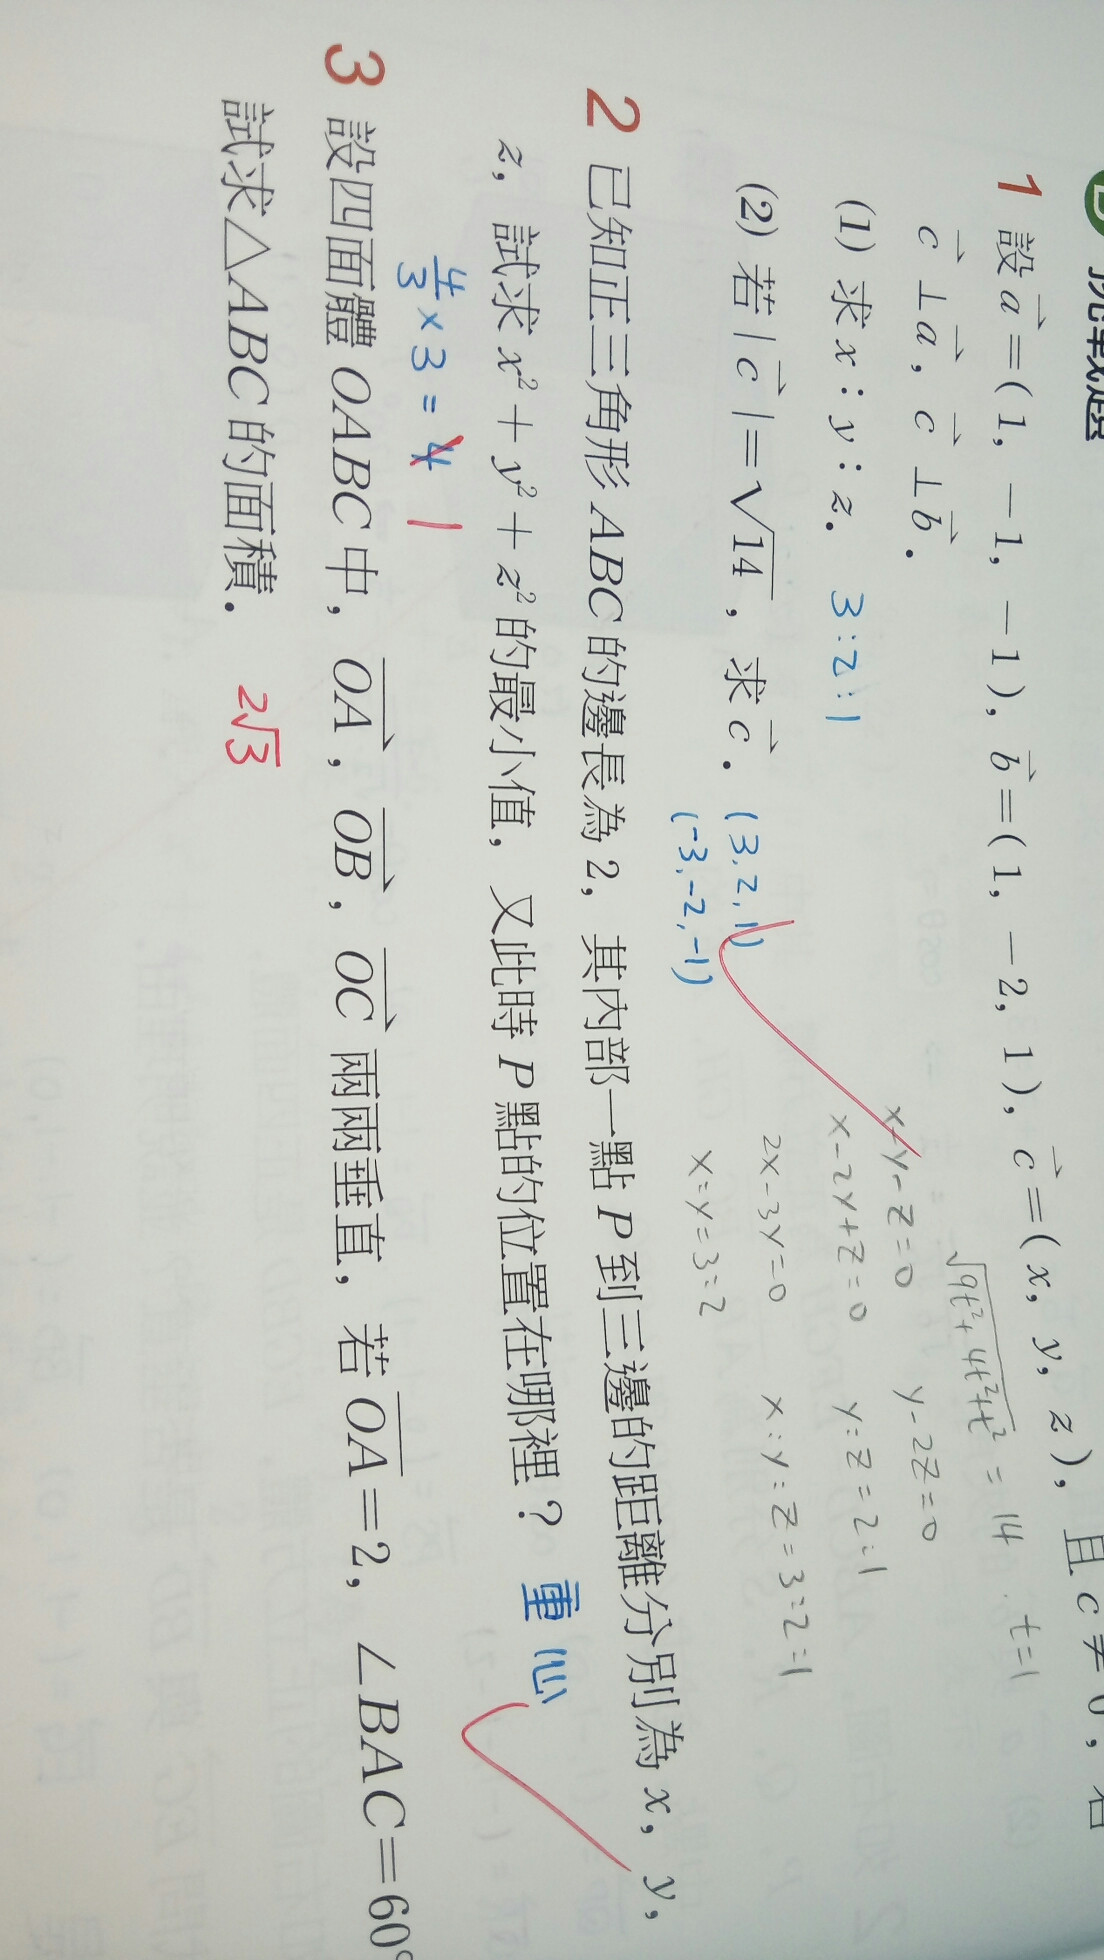 挑戰題
1 設a=(1, -1, -1), b=(1, -2, 1), c=(x, y, z), 且c≠0, 若
c⊥a, c⊥b.
(1) 求x:y:z. 3:2:1
(2) 若|c|=√14, 求c. (3,2,1)
(-3,-2,-1)
√9t²+4t²+t² = 14 t=1
x-y-z=0 y-2z=0
x-2y+z=0 y:z=2:1
2x-3y=0 x:y:z=3:2:1
x:y=3:2
2 已知正三角形ABC的邊長為2, 其內部一點P到三邊的距離分別為x, y,
z, 試求x²+y²+z²的最小值, 又此時P點的位置在哪裡? 重心
4/3×3=4 1
3 設四面體OABC中, OA, OB, OC兩兩垂直, 若OA=2, ∠BAC=60°
試求△ABC的面積. 2√3